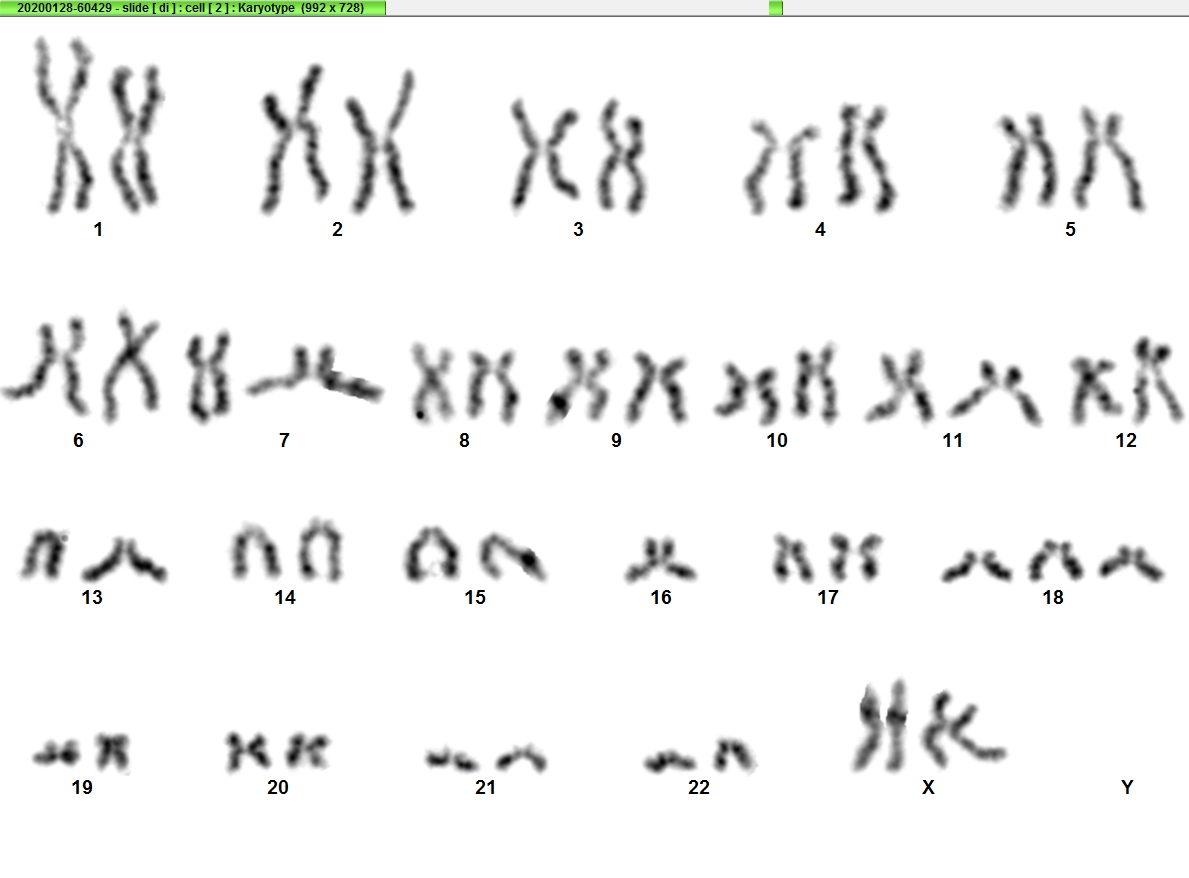 20200128-60429 - slide [ di ] : cell [ 2 ] : Karyotype (992 x 728)
1 2 3 4 5
6 7 8 9 10 11 12
13 14 15 16 17 18
19 20 21 22 X Y